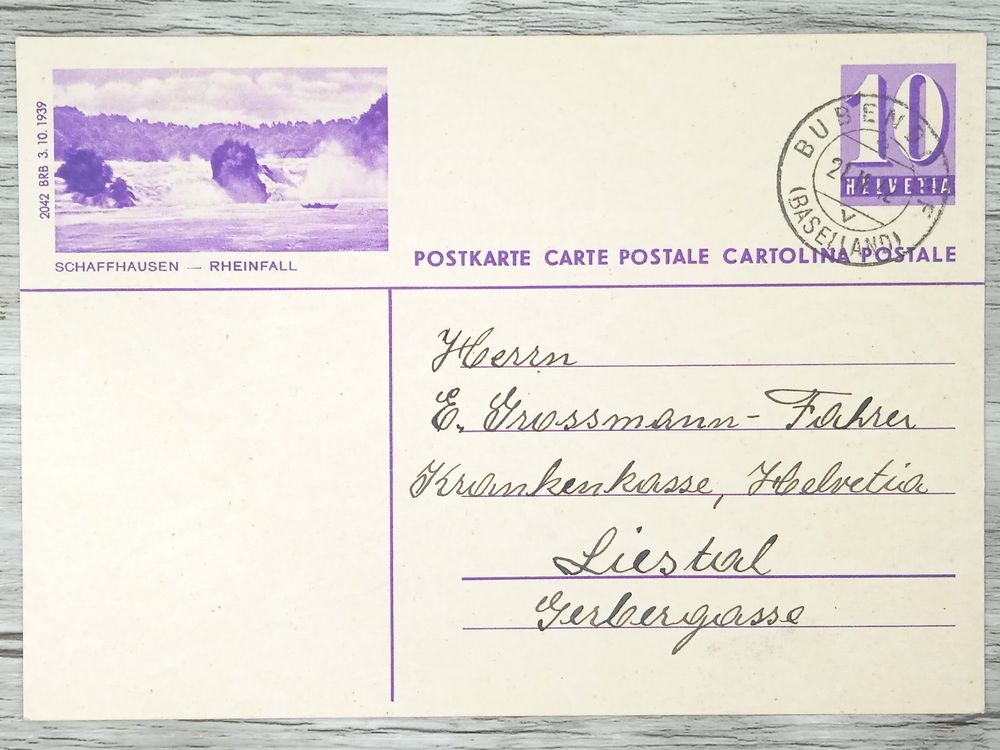 2042 BRB 3.10.1939
SCHAFFHAUSEN — RHEINFALL
10
HELVETIA
(BASELLAND)
V
POSTKARTE CARTE POSTALE CARTOLINA POSTALE
Herrn
E. Grossmann-Fahrer
Krankenkasse, Helvetia
Liestal
Gerbergasse